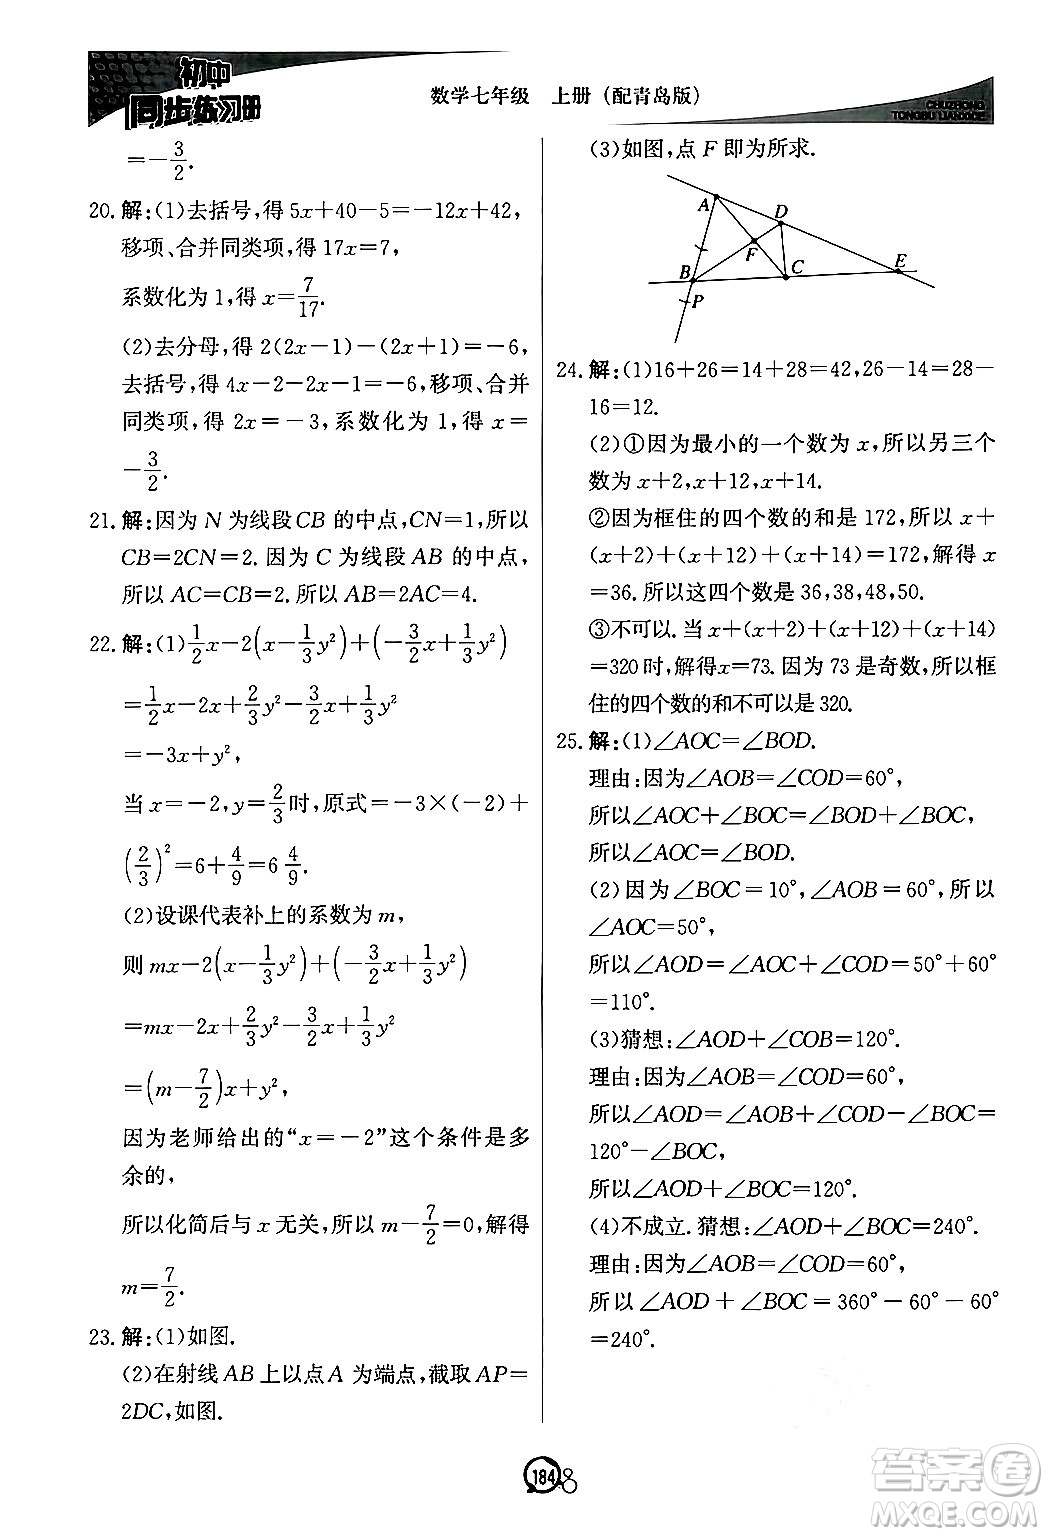 初中
同步练习册
数学七年级 上册（配青岛版）
CHUZHONG
TONGBU LIANXICE
=-3/2.
20. 解:(1)去括号,得 5x+40-5=-12x+42,
移项、合并同类项,得 17x=7,
系数化为 1,得 x=7/17.
(2)去分母,得 2(2x-1)-(2x+1)=-6,
去括号,得 4x-2-2x-1=-6,移项、合并
同类项,得 2x=-3,系数化为 1,得 x=
-3/2.
21. 解:因为 N 为线段CB 的中点,CN=1,所以
CB=2CN=2. 因为 C 为线段 AB 的中点,
所以 AC=CB=2. 所以 AB=2AC=4.
22. 解:(1)1/2x-2(x-1/3y²)+(-3/2x+1/3y²)
=1/2x-2x+2/3y²-3/2x+1/3y²
=-3x+y²,
当 x=-2,y=2/3时,原式=-3×(-2)+
(2/3)²=6+4/9=6 4/9.
(2)设课代表补上的系数为 m,
则 mx-2(x-1/3y²)+(-3/2x+1/3y²)
=mx-2x+2/3y²-3/2x+1/3y²
=(m-7/2)x+y²,
因为老师给出的“x=-2”这个条件是多
余的,
所以化简后与 x 无关,所以 m-7/2=0,解得
m=7/2.
23. 解:(1)如图.
(2)在射线 AB 上以点 A 为端点,截取 AP=
2DC,如图.
(3)如图,点 F 即为所求.
A
D
F
E
B
C
P
24. 解:(1)16+26=14+28=42,26-14=28-
16=12.
(2)①因为最小的一个数为 x,所以另三个
数为 x+2,x+12,x+14.
②因为框住的四个数的和是 172,所以 x+
(x+2)+(x+12)+(x+14)=172,解得 x
=36. 所以这四个数是 36,38,48,50.
③不可以. 当 x+(x+2)+(x+12)+(x+14)
=320 时,解得x=73. 因为 73 是奇数,所以框
住的四个数的和不可以是 320.
25. 解:(1)∠AOC=∠BOD.
理由:因为∠AOB=∠COD=60°,
所以∠AOC+∠BOC=∠BOD+∠BOC,
所以∠AOC=∠BOD.
(2)因为∠BOC=10°,∠AOB=60°,所以
∠AOC=50°,
所以∠AOD=∠AOC+∠COD=50°+60°
=110°.
(3)猜想:∠AOD+∠COB=120°.
理由:因为∠AOB=∠COD=60°,
所以∠AOD=∠AOB+∠COD-∠BOC=
120°-∠BOC,
所以∠AOD+∠BOC=120°.
(4)不成立. 猜想:∠AOD+∠BOC=240°.
理由:因为∠AOB=∠COD=60°,
所以∠AOD+∠BOC=360°-60°-60°
=240°.
184
8
答案圈
MXQE.COM